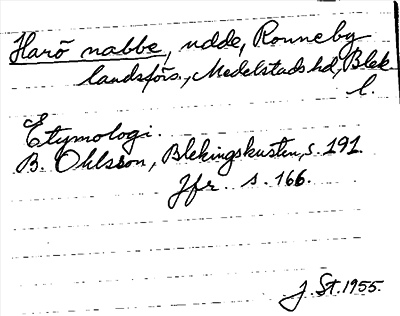 Harö nabbe, udde, Ronneby
landsförs., Medelstads hd, Blek.
l.
Etymologi.
B. Ohlsson, Blekingskusten, s. 191.
Jfr. s. 166.
J. St. 1955.